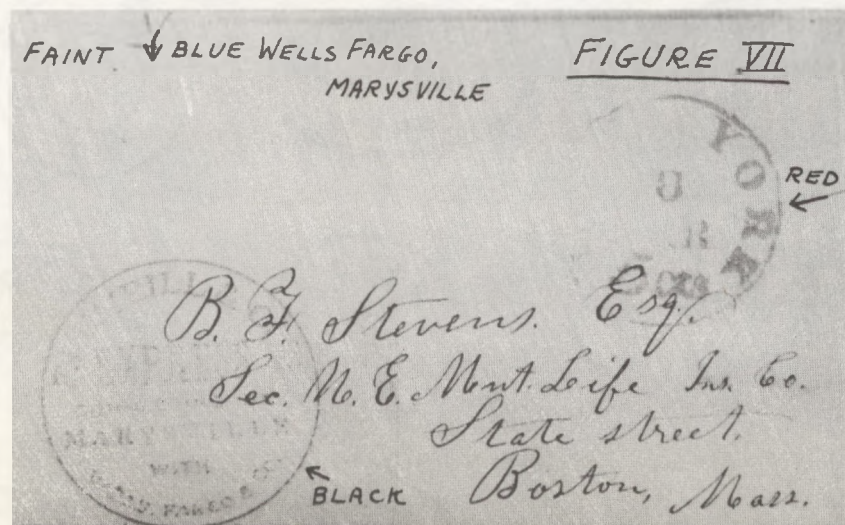 FAINT ↓ BLUE WELLS FARGO,
MARYSVILLE
FIGURE VII
YORK
RED
B. F. Stevens. Esq.
Sec. N. E. Mut. Life Ins. Co.
State street.
Boston, Mass.
MARYSVILLE
WITH
FARGO &
BLACK